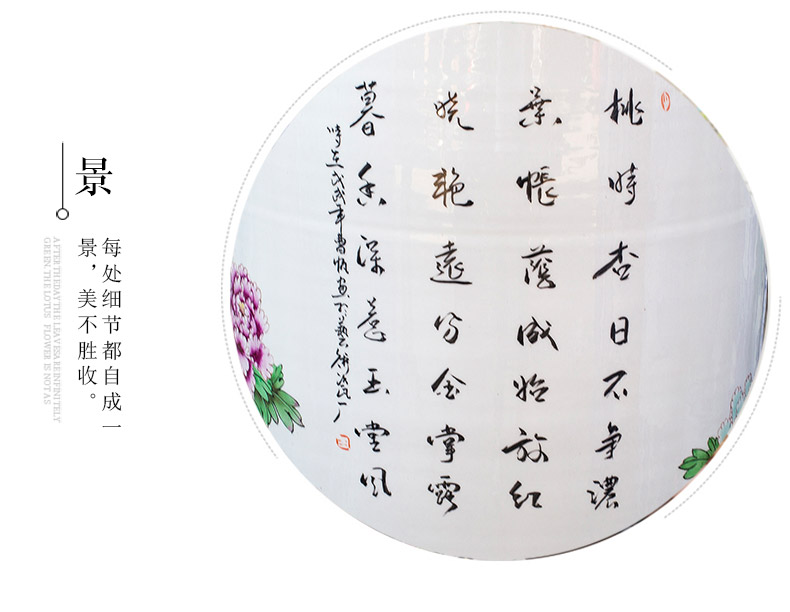 景
每处细节都自成一
景，美不胜收。
AFTER THE DAY THE LEAVES A RE INFINITELY
GREEN, THE LOTUS FLOWER IS NOT AS
桃时杏日不争浓
葉帳陰成始放红
晓艳遠分金掌露
暮香深惹玉堂风